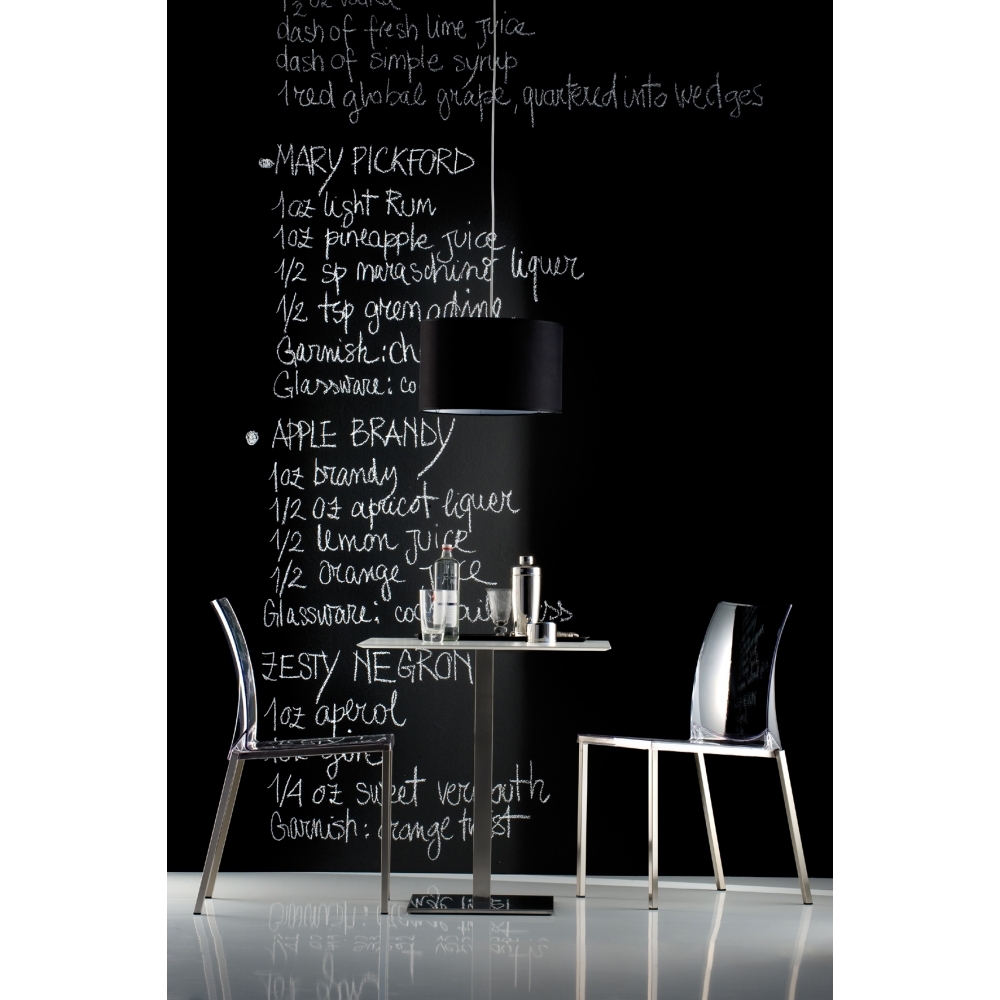 dash of fresh lime juice
dash of simple syrup
1 red global grape, quartered into wedges
MARY PICKFORD
1oz light Rum
1oz pineapple juice
1/2 sp maraschino liquer
1/2 tsp grenadine
Garnish: ch
Glassware: co
APPLE BRANDY
1oz brandy
1/2 oz apricot liquer
1/2 lemon juice
1/2 orange juice
Glassware:
ZESTY NEGRON
1oz aperol
gin
1/4 oz sweet vermouth
Garnish: orange twist